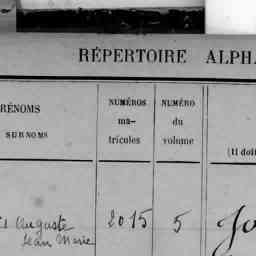 RÉPERTOIRE ALPHA
RÉNOMS
SURNOMS
NUMÉROS
ma-
tricules
NUMÉRO
du
volume
(Il doit
Auguste
Jean Marie
2015
5